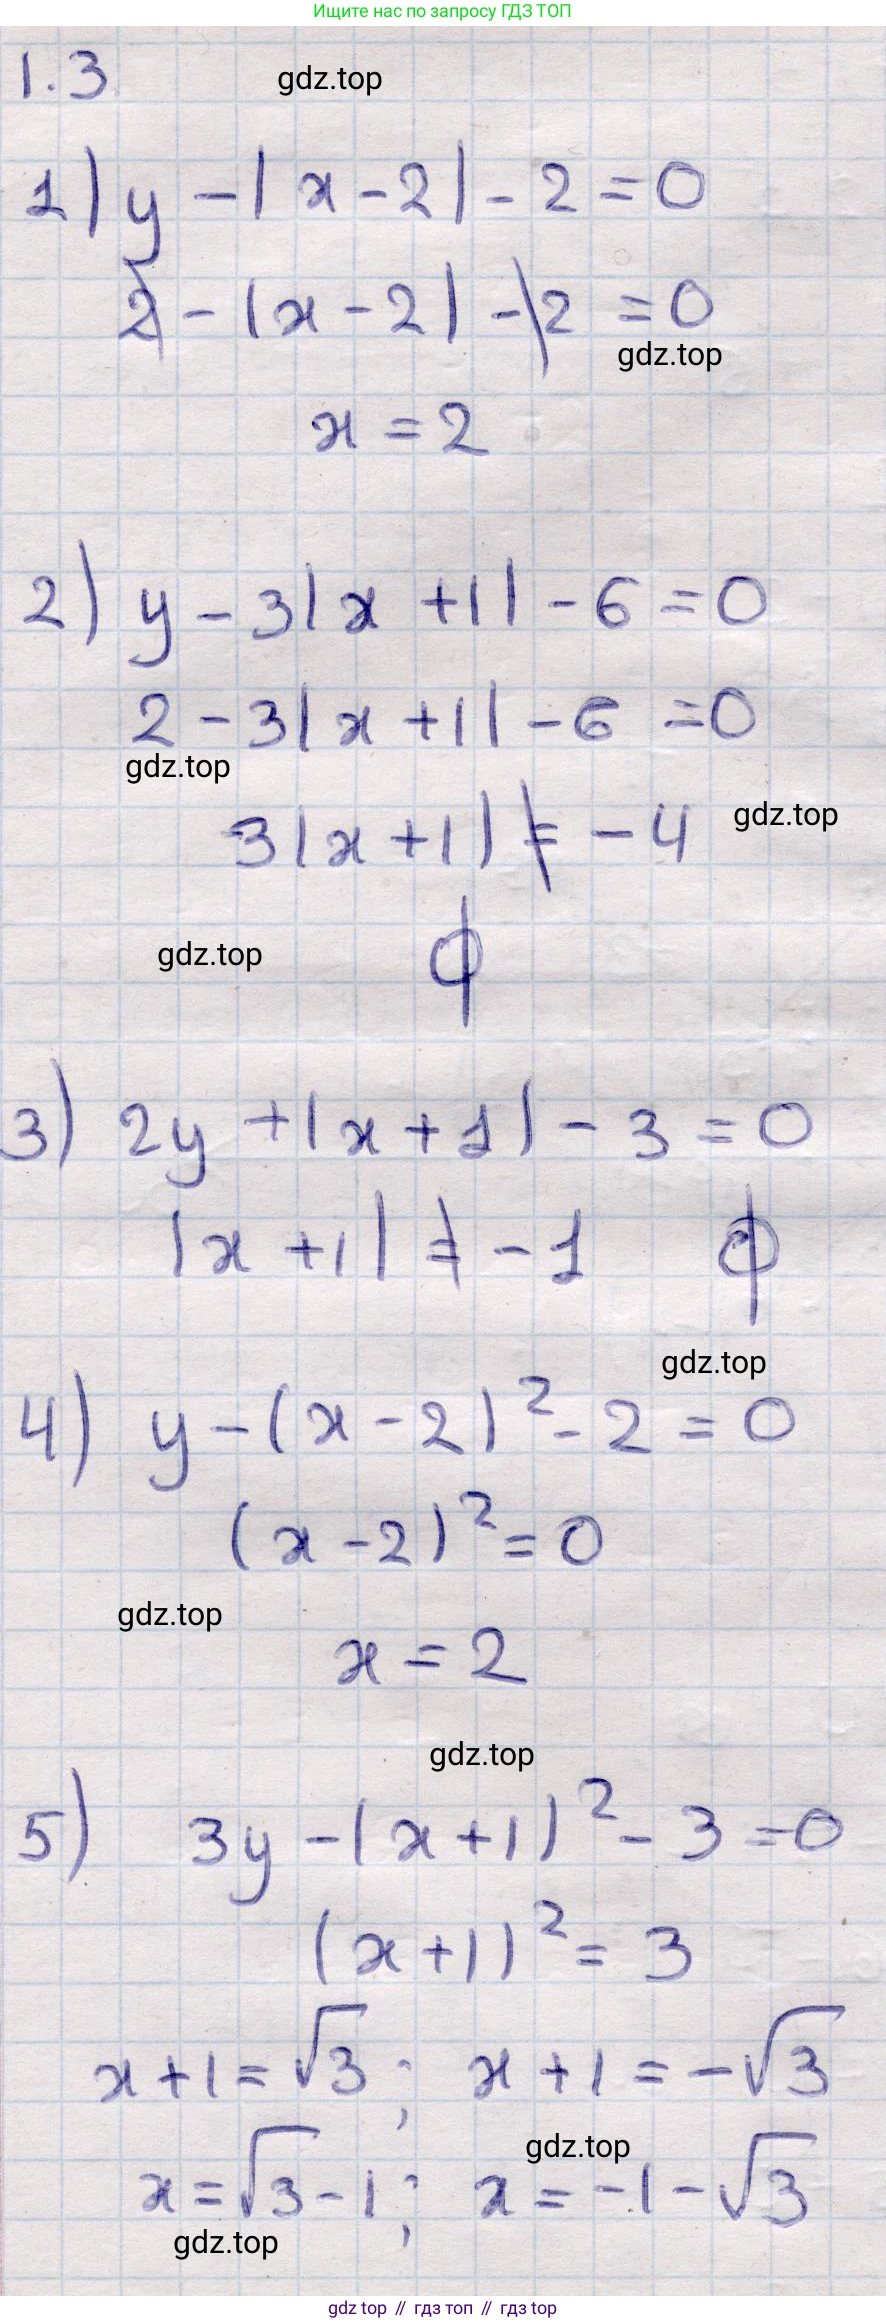 Ищите нас по запросу ГДЗ ТОП
1.3 gdz.top
1) y - |x - 2| - 2 = 0
2 - |x - 2| - 2 = 0
gdz.top
x = 2
2) y - 3|x + 1| - 6 = 0
2 - 3|x + 1| - 6 = 0
gdz.top
3|x + 1| ≠ - 4 gdz.top
gdz.top ∅
3) 2y + |x + 1| - 3 = 0
|x + 1| ≠ - 1 ∅
gdz.top
4) y - (x - 2)² - 2 = 0
(x - 2)² = 0
gdz.top
x = 2
gdz.top
5) 3y - (x + 1)² - 3 = 0
(x + 1)² = 3
x + 1 = √3 ; x + 1 = - √3
gdz.top
x = √3 - 1 ; x = -1 - √3
gdz.top
gdz top // гдз топ // гдз top